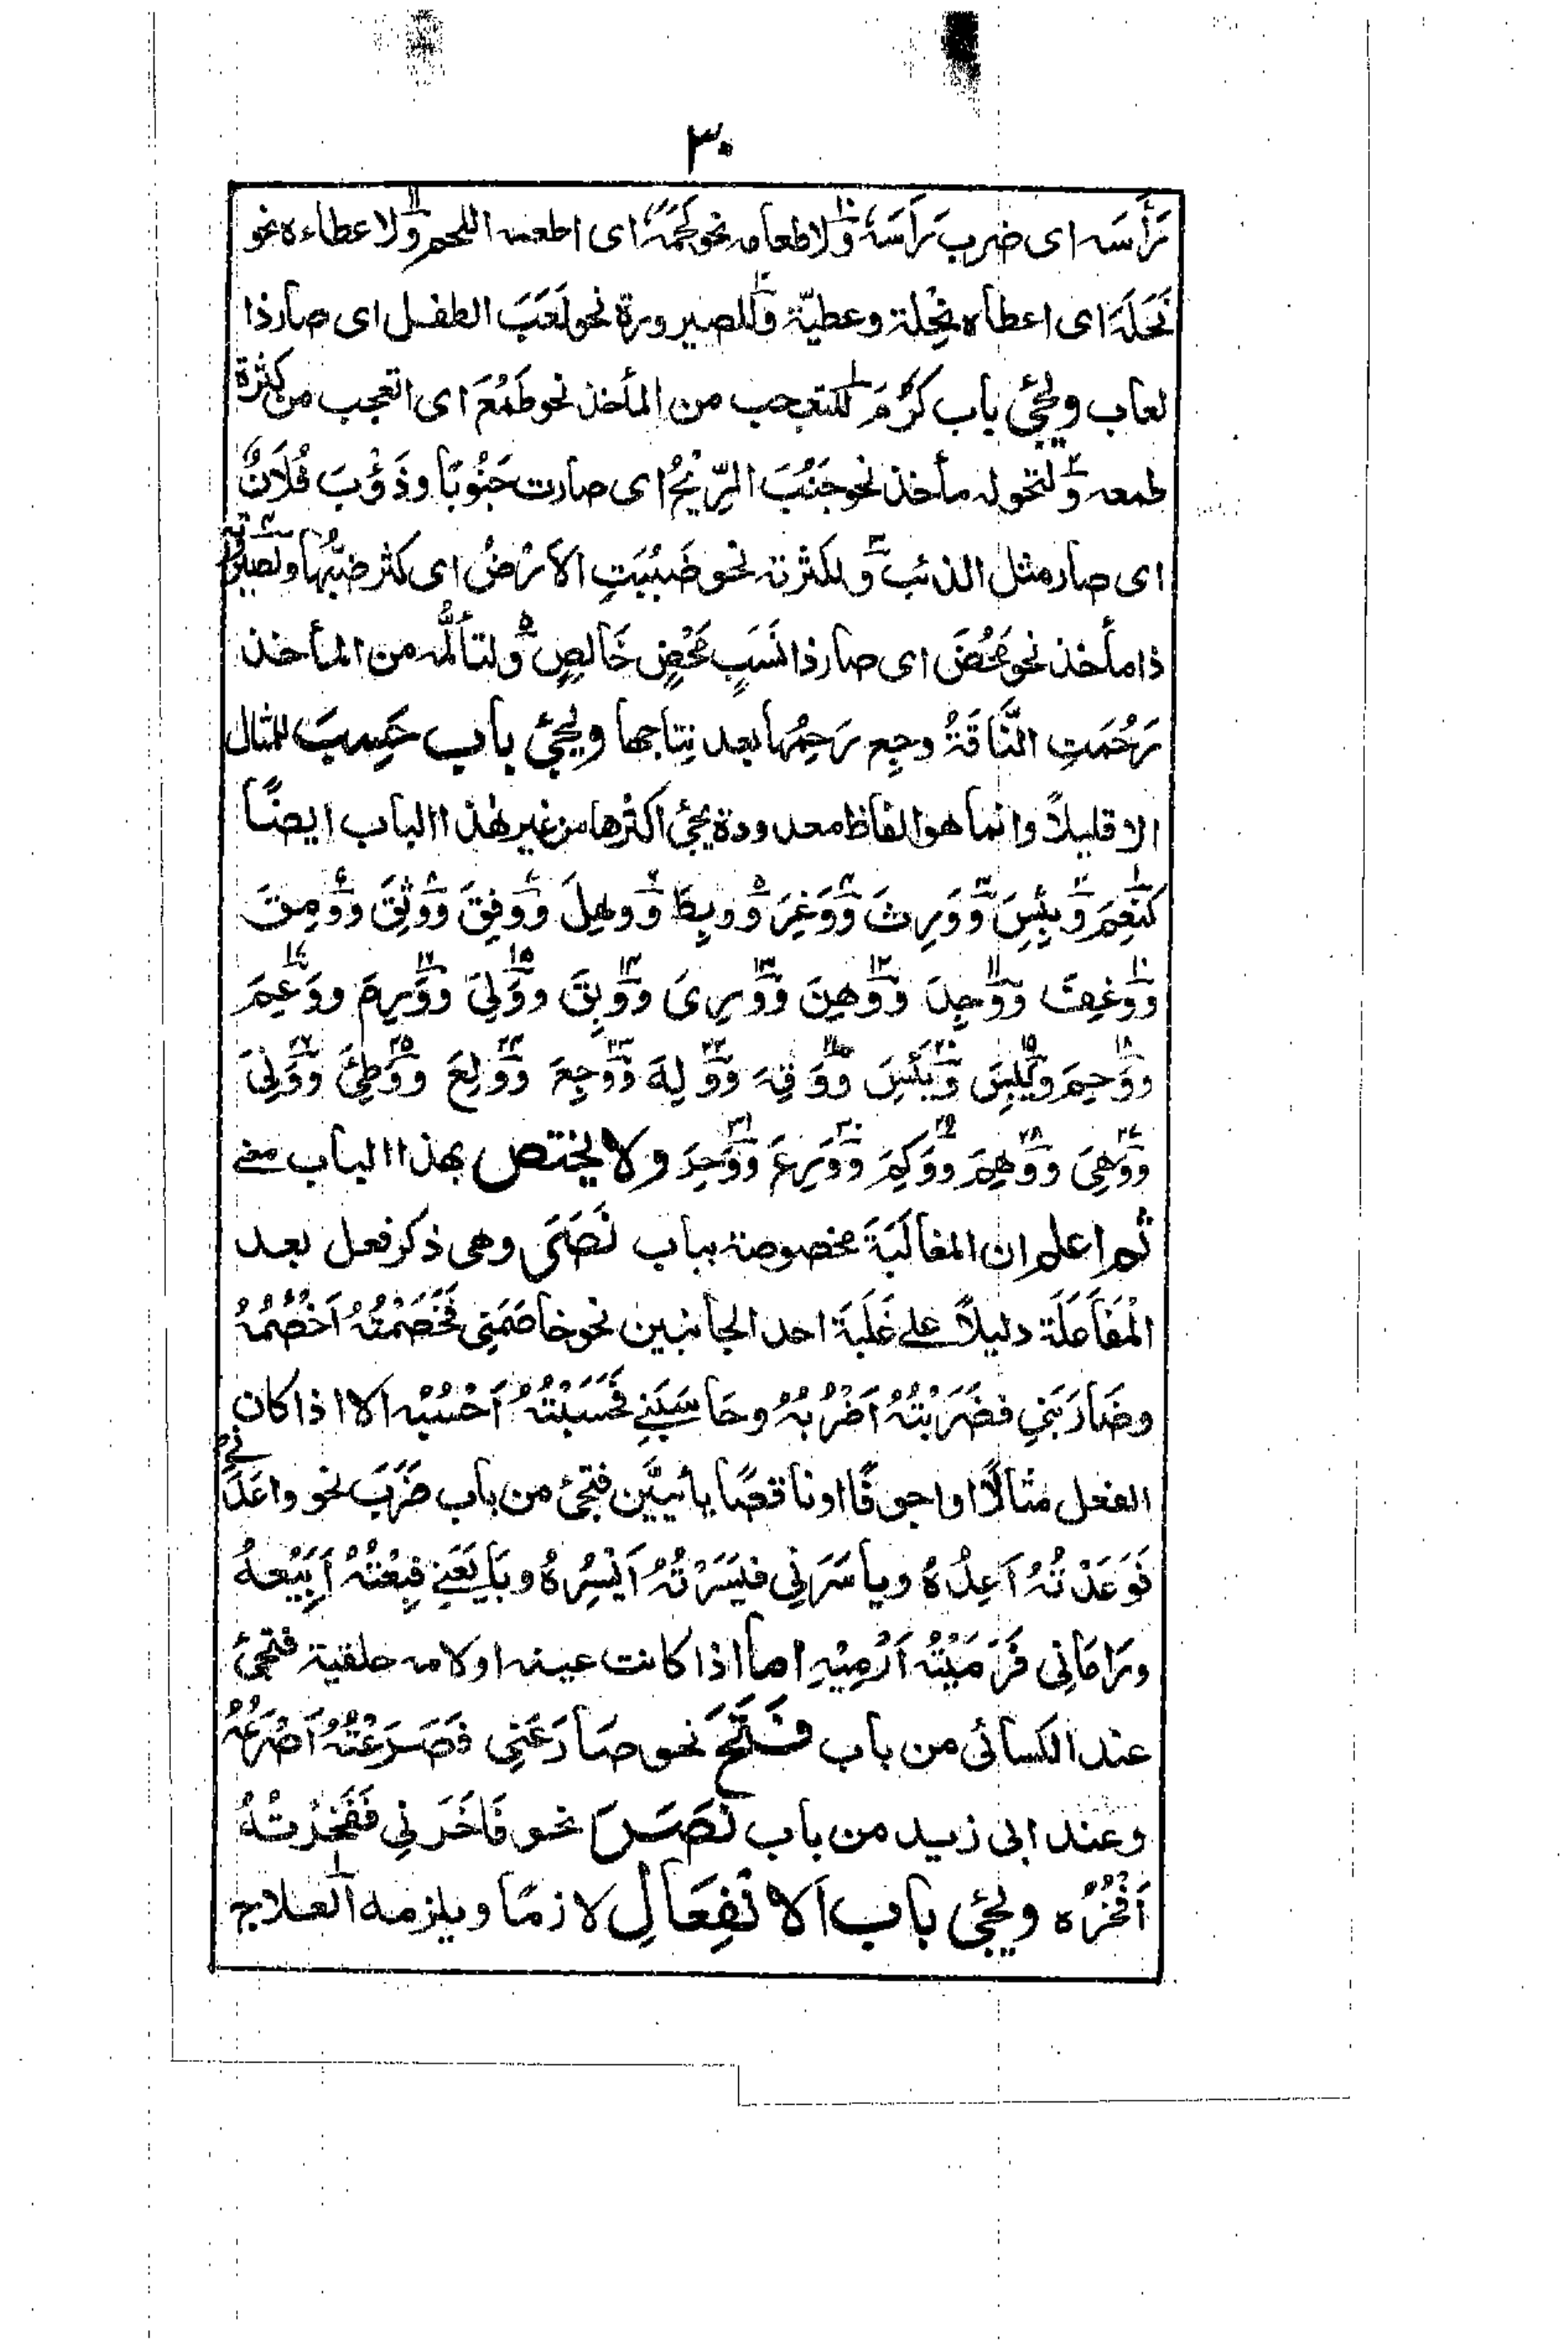 ٣٠
رَأَسَہ ای ضرب رَأسَہٗ وَلاطعامہ نحو لَحَمَہٗ ای اطعمہ اللحم ولاعطاءہ نحو
نَحَلَہَ ای اعطاہ نِحْلة وعطیّة وللصیرورة نحو لَعَبَ الطفل ای صار ذا
لعاب ویجیٔ باب کَرُمَ للتعجب من المأخذ نحو طَمُعَ ای اتعجب من کثرة
طمعہ ولتحولہ مأخذ نحو جَنُبَ الرِّیْحُ ای صارت جَنُوبًا وذَؤُبَ فُلَانٌ
ای صار مثل الذئب ولکثرتہ نحو ضَبُبَتِ الاَرْضُ ای کثر ضبُّہا ولصیرورتہ
ذا مأخذ نحو مَحُضَ ای صار ذا نَسَبٍ مَحْضٍ خَالِصٍ ولتألُّمہ من المأخذ
رَحُمَتِ النَّاقَةُ وجِع رَحِمُہا بعد نِتاجہا ویجیٔ باب حَسِبَ للمثال
الا قلیلاً وانما ھو الفاظ معدودة یجیٔ اکثرھا من غیر ھٰذا الباب ایضًا
کنَعِمَ وَبَئِسَ وَوَرِثَ وَوَغِرَ وَوبِطَ وَوھِلَ وَوَفِقَ وَوَثِقَ وَوَمِقَ
وَوَغِفَ وَوَجِلَ وَوَھِنَ وَوَرِیَ وَوَبِقَ ووَلِیَ ووَرِمَ ووَعِمَ
ووَحِمَ ویَبِسَ ویَئِسَ ووَقِہَ ووَلِہَ ووَجِعَ ووَلِعَ ووَطِئَ ووَلِیَ
ووَھِیَ ووَھِمَ ووَکِمَ ووَرِعَ ووَحِدَ ولا یختص بھذا الباب معنے
ثم اعلم ان المغالَبَةَ مخصوصة بباب نَصَرَ وھی ذکر فعل بعد
الْمُفَاعَلَة دلیلاً علے غَلَبَةَ احد الجانبین نحو خاصَمَنِی فَخَصَمْتُہُ اَخْصُمُہُ
وضَارَبَنِی فضَرَبْتُہُ اَضْرُبُہُ وحَاسَبَنِے فَحَسَبْتُہُ اَحْسُبُہ الا اذا کان
الفعل مثالًا او اجوفًا او ناقصًا یائیَّین فتجیٔ من باب ضَرَبَ نحو واعَدَنِی
فَوَعَدْتُہُ اَعِدُہُ ویاسَرَنِی فیَسَرْتُہُ اَیْسِرُہُ وبَایَعَنِے فبِعْتُہُ اَبِیْعہُ
ورَامَانِی فَرَمَیْتُہُ اَرْمِیْہِ اما اذا کانت عینہ او لامہ حلقیة فتجیٔ
عند الکسائی من باب فَتَحَ نحو صَارَعَنِی فَصَرَعْتُہُ اَصْرَعُہُ
وعند ابی زید من باب نَصَرَ نحو فَاخَرَنِی فَفَخَرْتُہُ
اَفْخُرُہ ویجیٔ باب اَلاِنْفِعَالِ لازمًا ویلزمہ العلاج